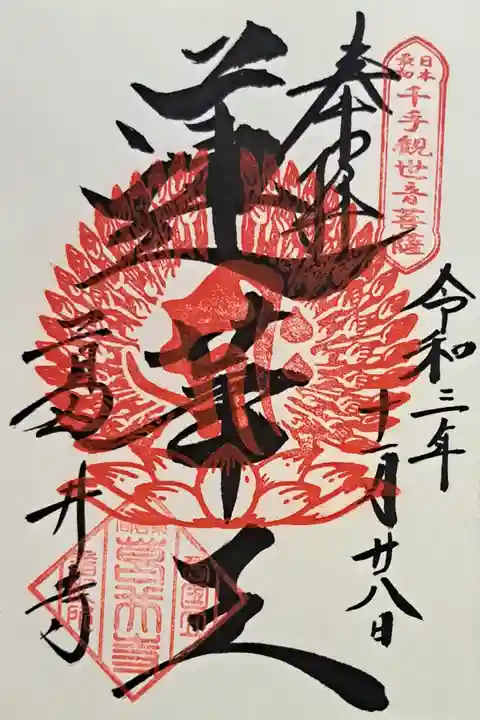 日本
最初
千手観世音菩薩
奉拝
令和三年
十一月廿八日
蓮華王
葛井寺